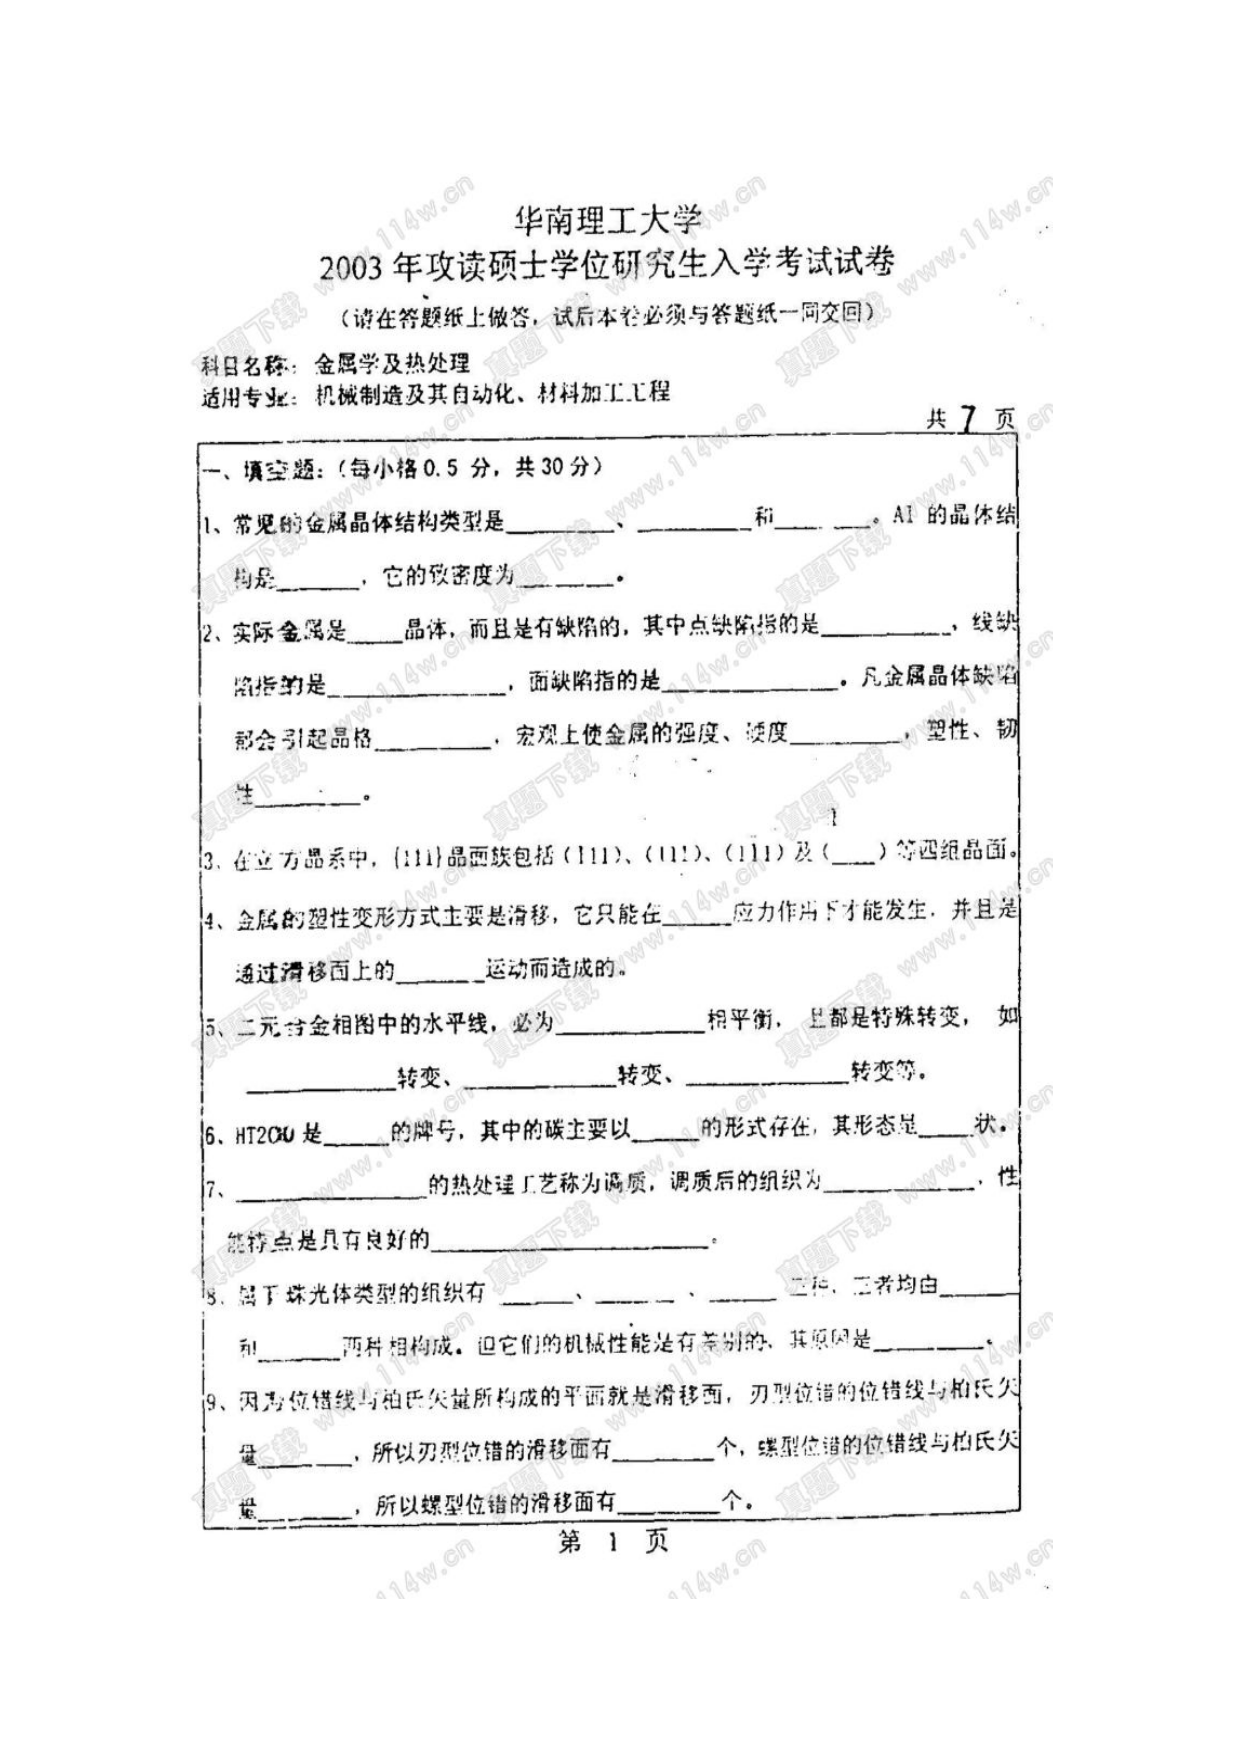 华南理工大学
2003 年攻读硕士学位研究生入学考试试卷
（请在答题纸上做答，试后本卷必须与答题纸一同交回）
科目名称：金属学及热处理
适用专业：机械制造及其自动化、材料加工工程
共 7 页
一、填空题：（每小格0.5 分，共30分）
1、常见的金属晶体结构类型是________、________和________。Al 的晶体结
构是______，它的致密度为______。
2、实际金属是____晶体，而且是有缺陷的，其中点缺陷指的是__________，线缺
陷指的是____________，面缺陷指的是____________。凡金属晶体缺陷
都会引起晶格________，宏观上使金属的强度、硬度________，塑性、韧
性________。
3、在立方晶系中，{111}晶面族包括（111）、（111）、（111）及（___）等四组晶面。
4、金属的塑性变形方式主要是滑移，它只能在_____应力作用下才能发生，并且是
通过滑移面上的______运动而造成的。
5、二元合金相图中的水平线，必为__________相平衡， 且都是特殊转变， 如
__________转变、__________转变、__________转变等。
6、HT200 是____的牌号，其中的碳主要以____的形式存在，其形态是____状。
7、____________的热处理工艺称为调质，调质后的组织为__________，性
能特点是具有良好的__________________。
8、属于珠光体类型的组织有 _____、_____ 、_____ 三种，三者均由_____
和_____两种相构成。但它们的机械性能是有差别的，其原因是_______。
9、因为位错线与柏氏矢量所构成的平面就是滑移面，刃型位错的位错线与柏氏矢
量______，所以刃型位错的滑移面有______个，螺型位错的位错线与柏氏矢
量______，所以螺型位错的滑移面有______个。
第 1 页
真题下载 www.114w.cn